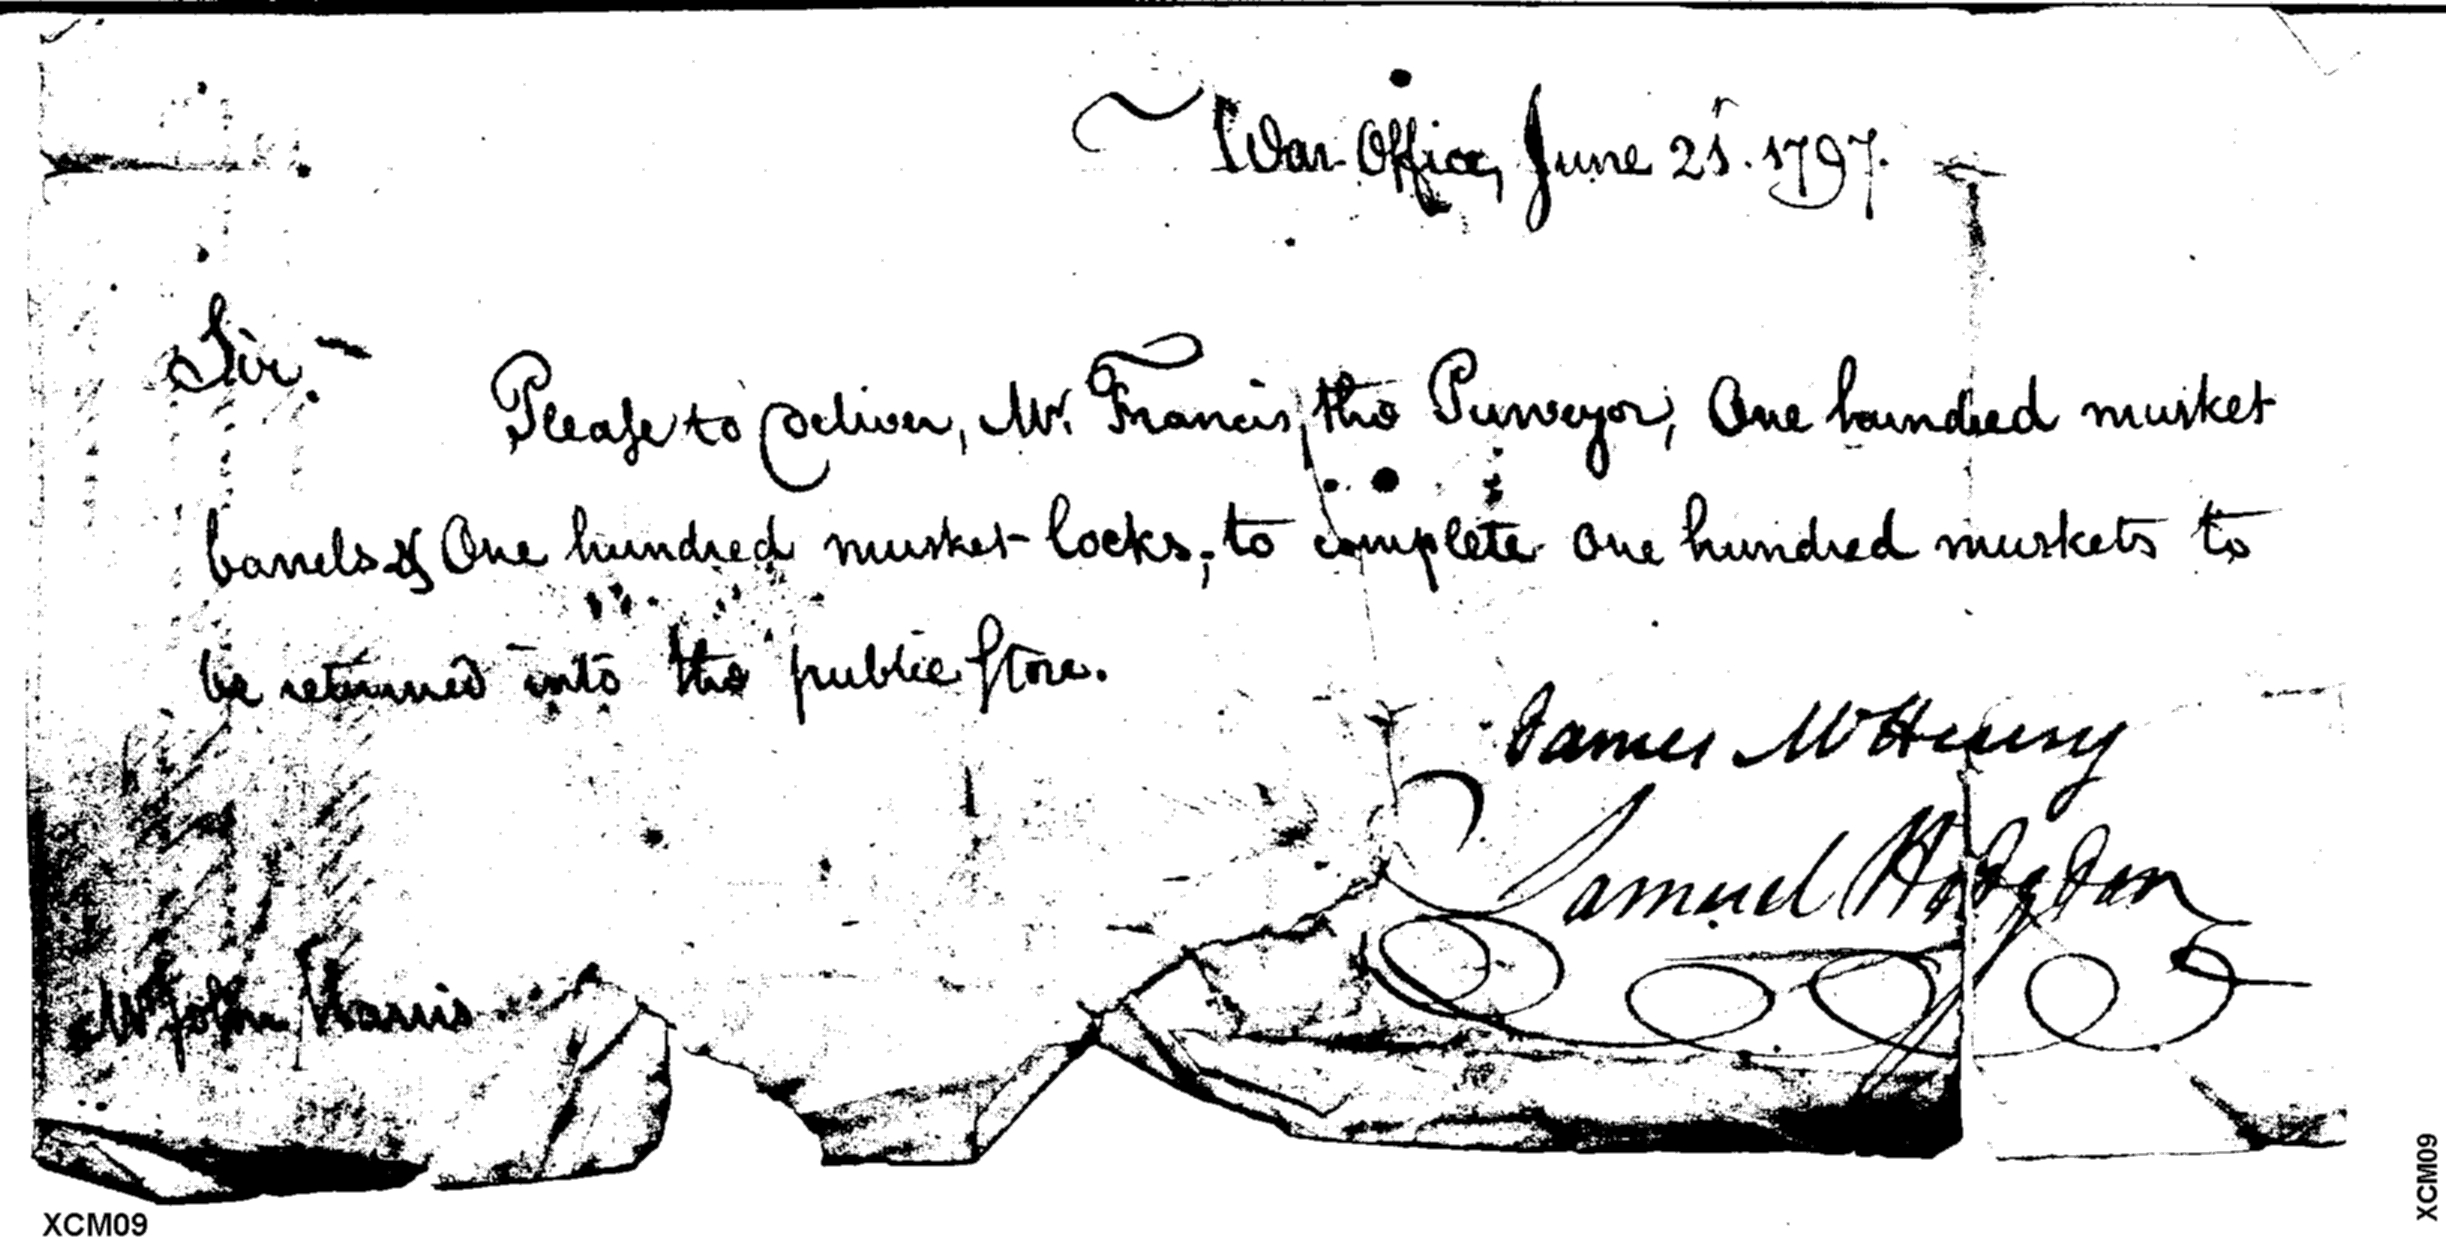 War Office, June 21st. 1797.
Sir,
Please to deliver, Mr. Francis, the Purveyor, One hundred musket
barrels & One hundred musket locks, to complete one hundred muskets to
be returned into the public Store.
James McHenry
Samuel Hodgdon
Mr John Harris
XCM09
XCM09